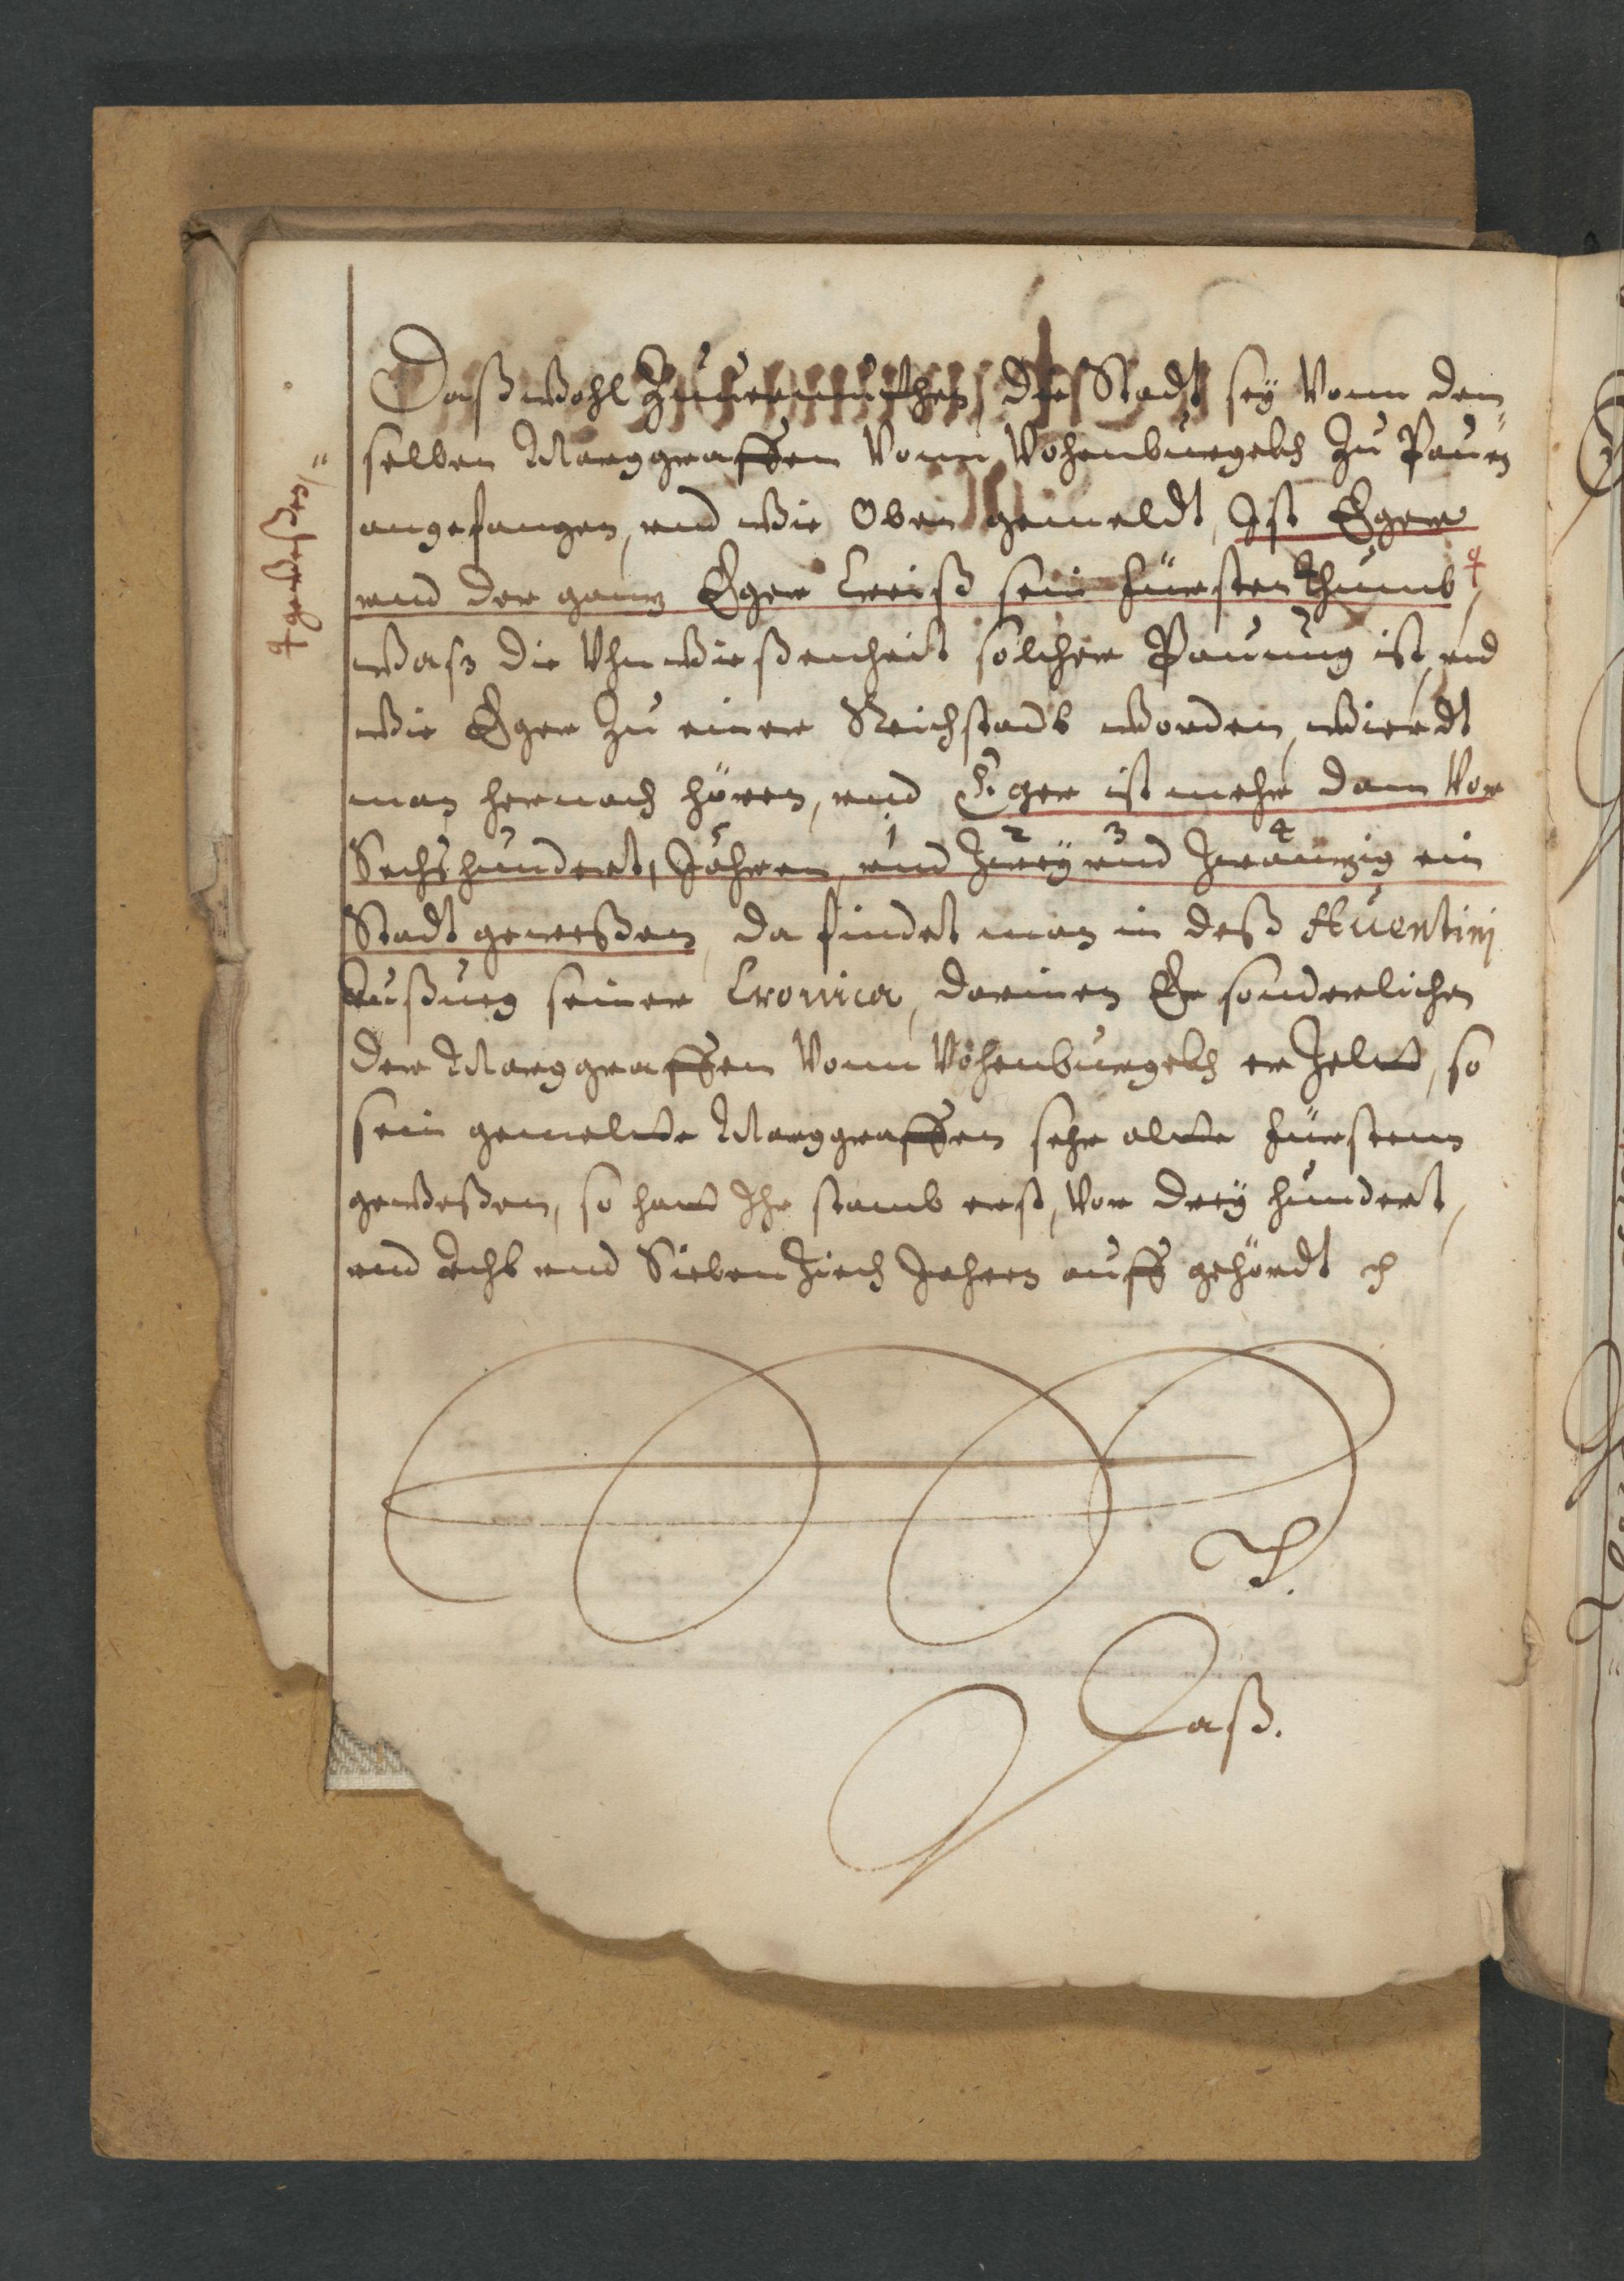 Daß wohl Zuuermuthen, die Stadt seÿ Vonn den„
selben Marggraffen Vonn Vohenburgekh Zu Pauen
angefangen, vnd wie Oben gemeldt, Ist Eger
vnd der ganz Eger Creiß sein fürstenthumb ‡
‡ geweßen,„
waß die Vhnwießenheit solcher Pauung ist, vnd
wie Eger Zu einer Reichstadt worden, wierdt
man hernach hören, vnd Eger ist mehr dann Vor
5 1 2 3 4
Sechshundert, Jahren, vnd Zweÿ vnd Zwanzig ein
Stadt geweßen, da findet man in deß Auentinj
Außzug seiner Cronica, darinen Er sonderlichen
der Marggraffen Vonn Vohenburgekh erZelt, so
sein gemelte Marggraffen sehr alte fürstenn
geweßen, so hatt Ihr stamb erst, Vor dreÿ hundert,
vnd Acht vnd SiebenZiech Jahren auff gehördt
Daß.